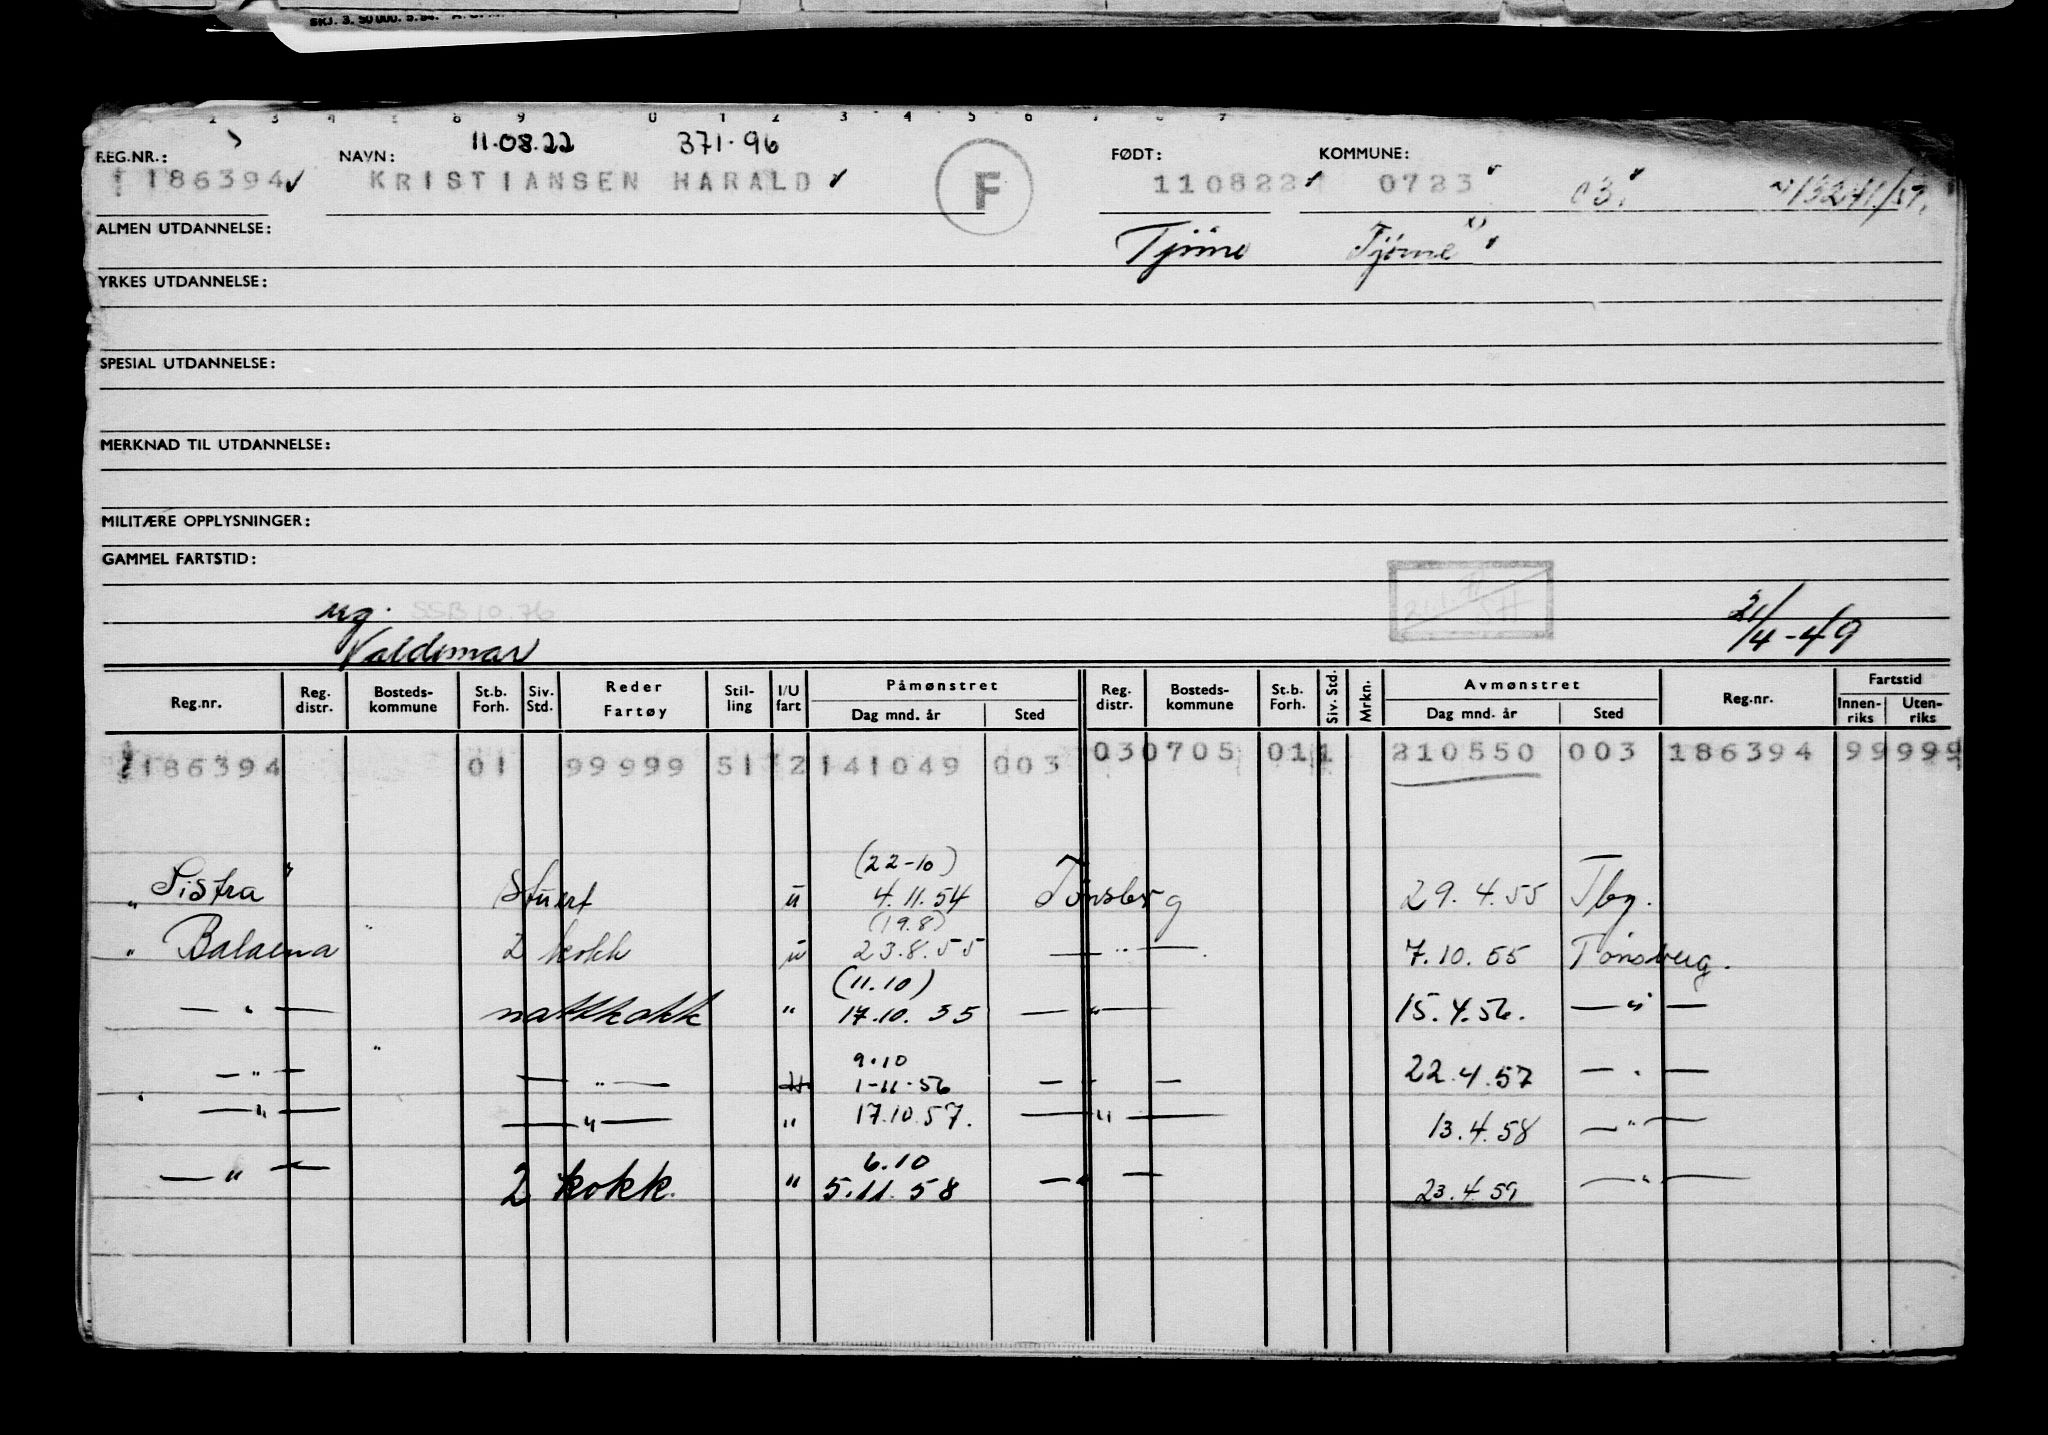 2 3 4 5 8 9 0 1 2 3 4 5 6 7 8 9
11.08.22 371.96
REG.NR.: NAVN: FØDT: KOMMUNE:
186394 KRISTIANSEN HARALD F 110822 0723 03.
Tjøme Tjøme x)
ALMEN UTDANNELSE:
YRKES UTDANNELSE:
SPESIAL UTDANNELSE:
MERKNAD TIL UTDANNELSE:
MILITÆRE OPPLYSNINGER:
GAMMEL FARTSTID:
SSB 10.76
Valdemar 21/4-49
Reg.nr. Reg. distr. Bosteds-kommune St.b. Forh. Siv. Std. Reder Fartøy Stil-ling I/U fart Påmønstret Dag mnd. år Sted Reg. distr. Bosteds-kommune St.b. Forh. Siv. Std. Mrkn. Avmønstret Dag mnd. år Sted Reg.nr. Fartstid Innen-riks Uten-riks
186394 01 99999 51 2 141049 003 030705 011 210550 003 186394 99999
(22-10)
"Sistra" Stuert u 4.11.54 Tønsberg 29.4.55 Tbg.
(19.8)
"Balaena" 2 kokk u 23.8.55 — " — 7.10.55 Tønsberg.
(11.10)
— " — nattkokk " 17.10.55 — " — 15.4.56. — " —
9.10
— " — — " — 1-11-56 — " — 22.4.57 — " —
— " — — " — " 17.10.57. — " — 13.4.58 — " —
6.10
— " — 2 kokk. " 5.11.58 — " — 23.4.59 — " —